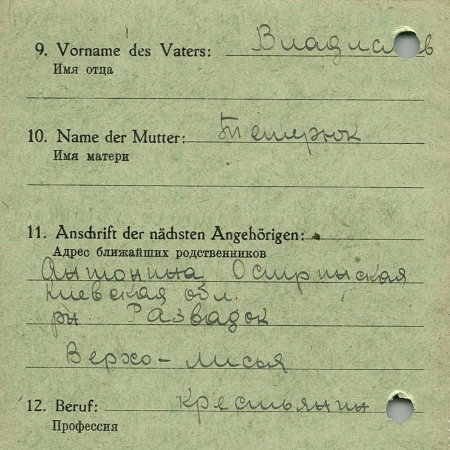 9. Vorname des Vaters: Владислав
Имя отца
10. Name der Mutter: Тетерюк
Имя матери
11. Anschrift der nächsten Angehörigen:
Адрес ближайших родственников
Антонина Остринская
Киевская обл.
рн. Развадок
Верхо-лисья
12. Beruf: Крестьянин
Профессия